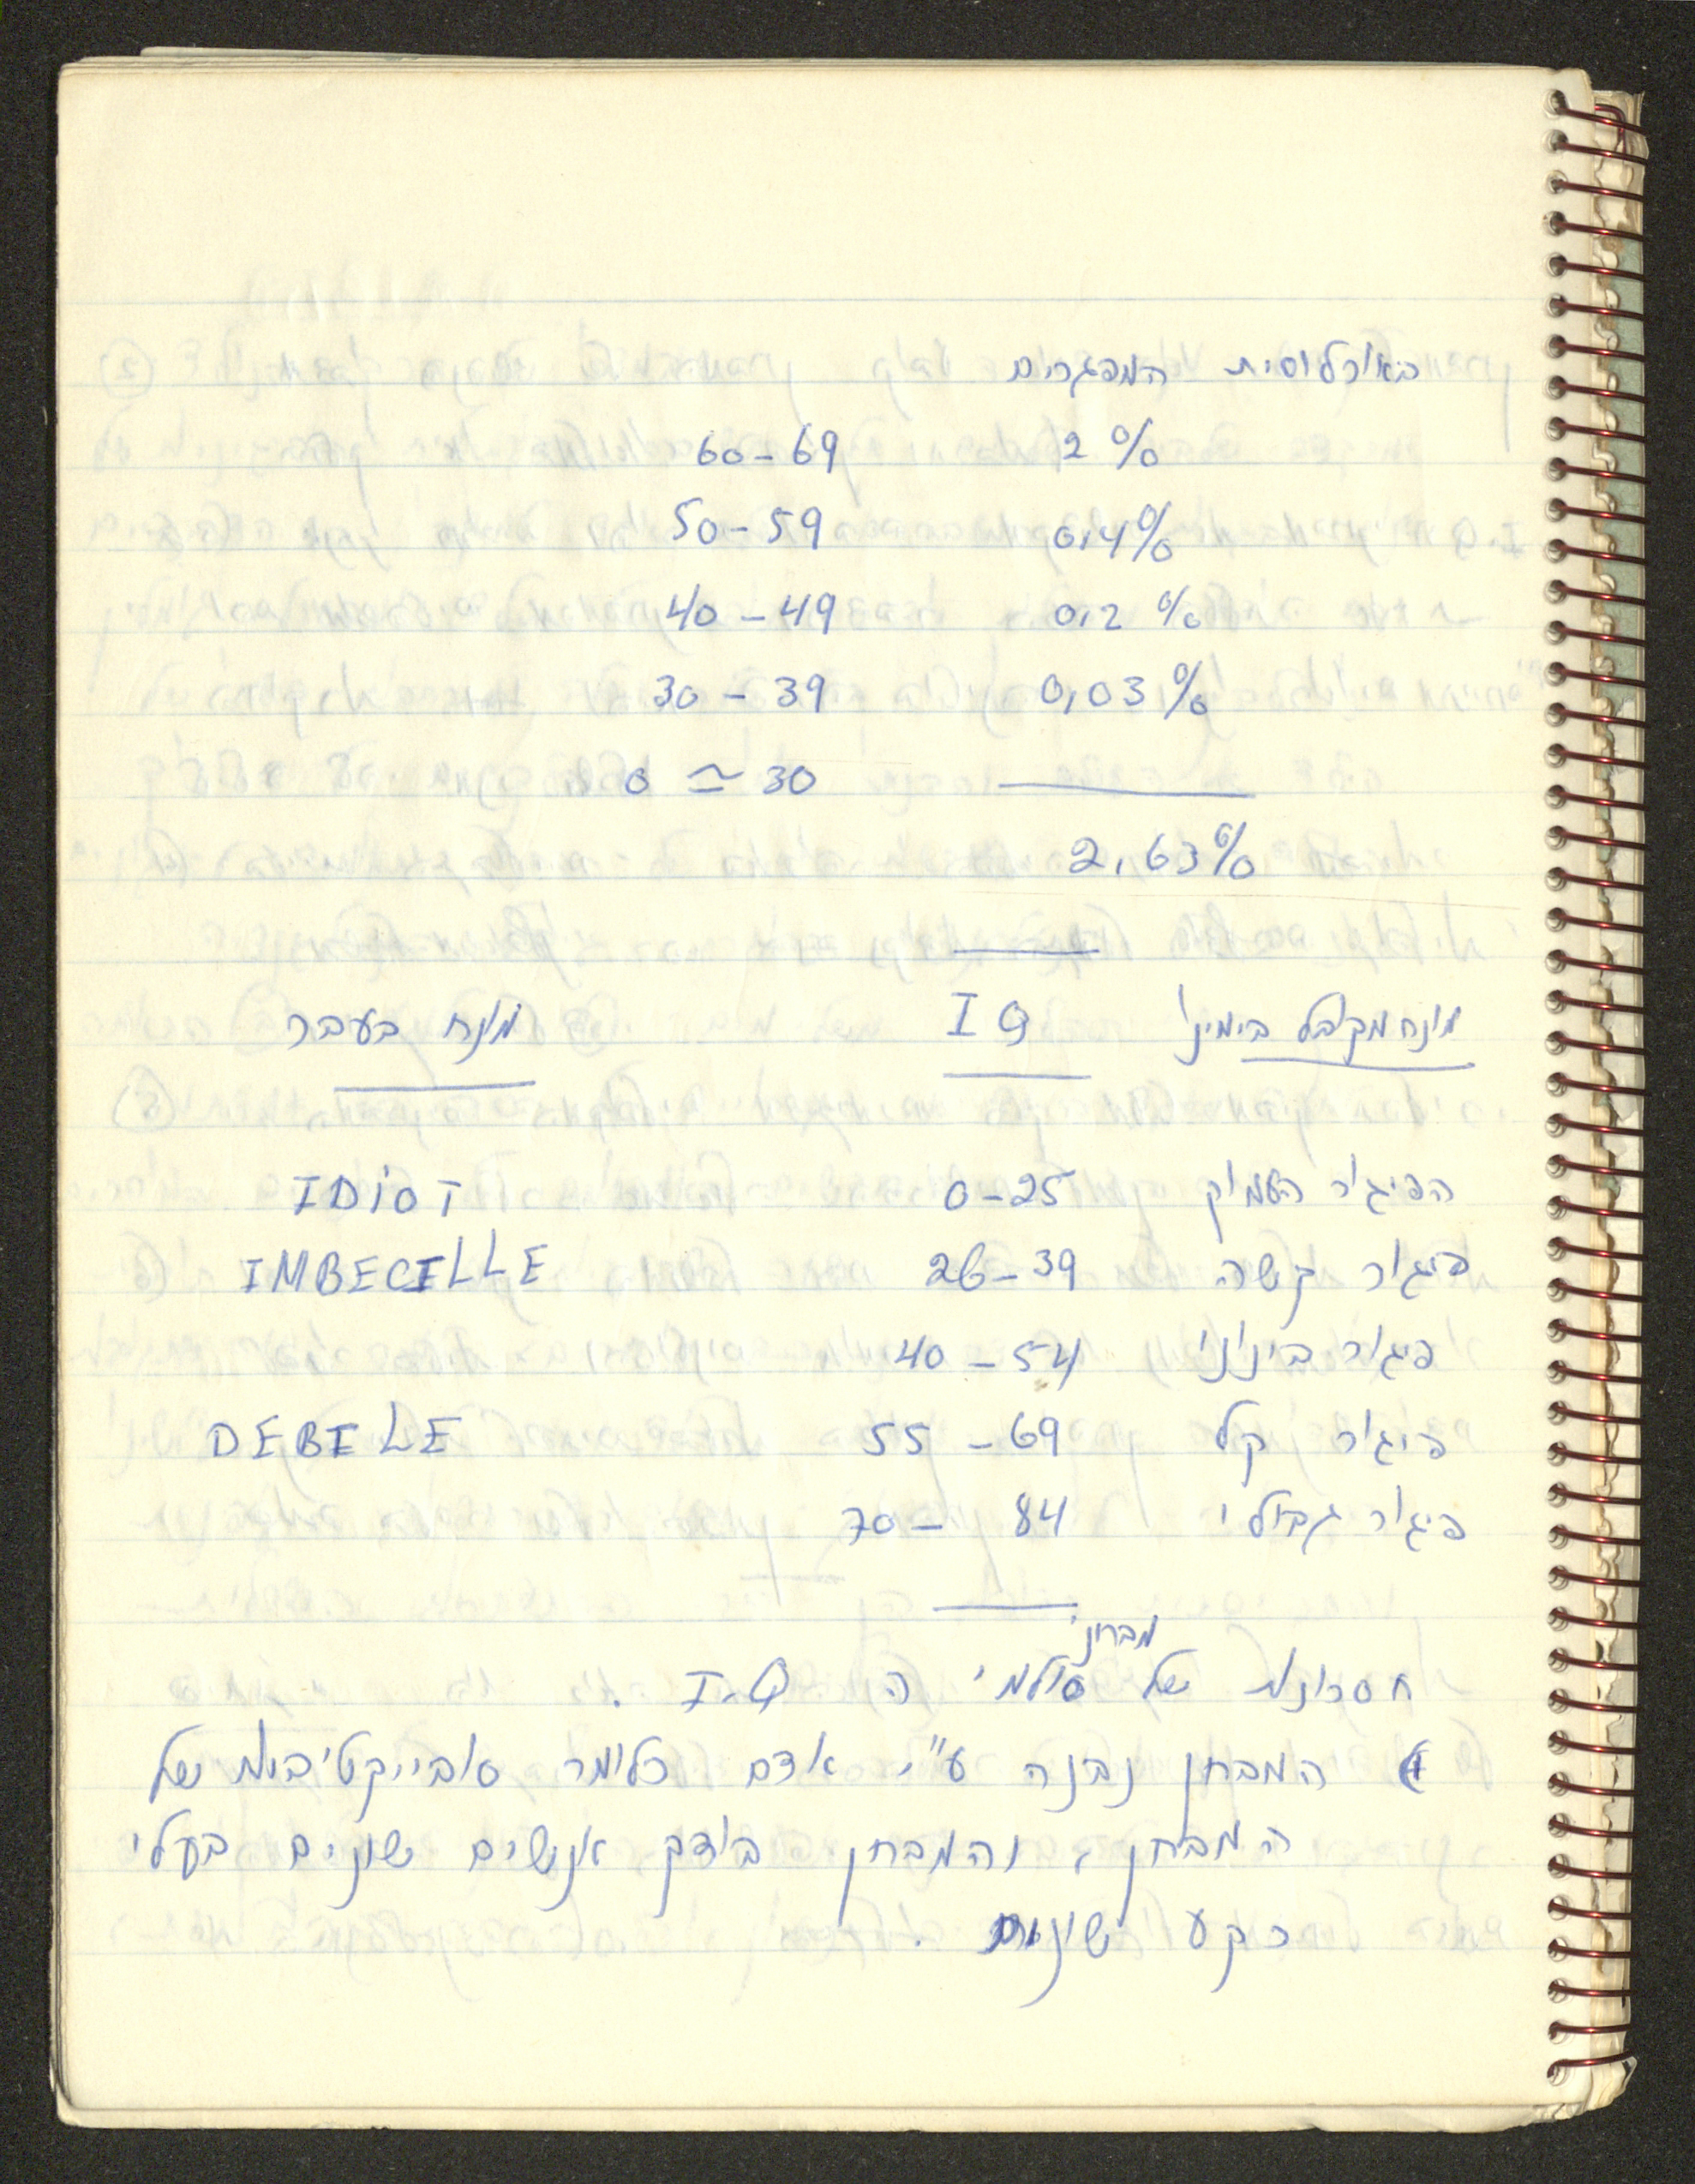 באוכלוסית המפגרים
2% 60-69
0,4% 50-59
0,2% 40-49
0,03% 30-39
0 ≃ 30
2,63%
מונח מקובל בימינו IQ מונח בעבר
הפיגור העמוק 0-25 IDIOT
פיגור קשה 26-39 IMBECILLE
פיגור בינוני 40-54
פיגור קל 55-69 DEBILE
פיגור גבולי 70-84
מבחני
חסרונות של סולמי ה I.Q.
המבחן נבנה ע"י אדם כלומר סובייקטיביות של
המבחן, והמבחן בודק אנשים שונים בעלי
רקע שונה.